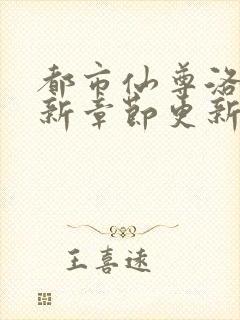 都市仙尊洛
新章节更新
王喜远